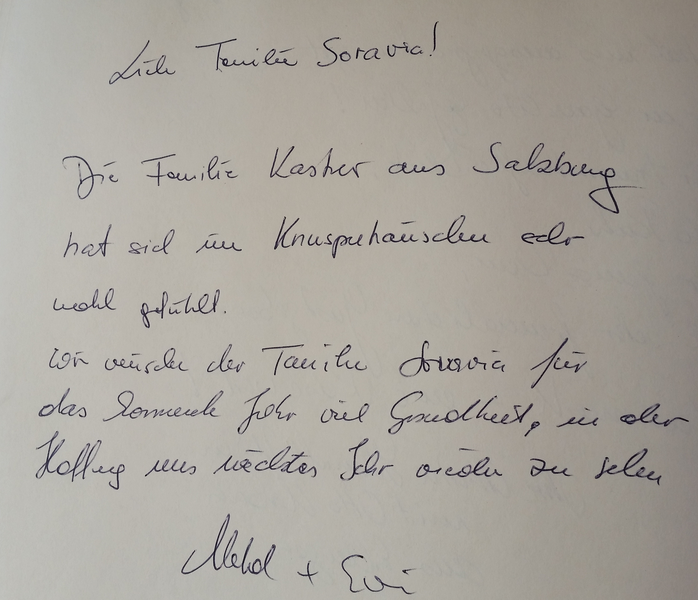 Liebe Familie Soravia!
Die Familie Kastner aus Salzburg
hat sich im Knusperhäuschen sehr
wohl gefühlt.
Wir wünschen der Familie Soravia für
das kommende Jahr viel Gesundheit, in der
Hoffnung uns nächstes Jahr wieder zu sehen
+ Evi